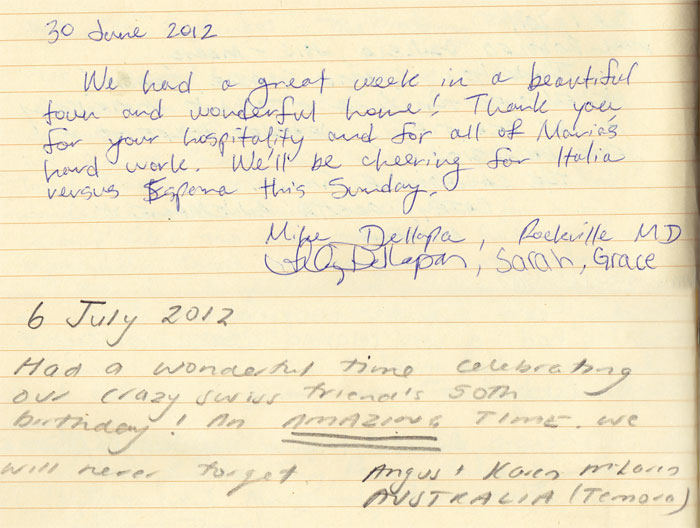 30 June 2012
We had a great week in a beautiful
town and wonderful home! Thank you
for your hospitality and for all of Maria's
hard work. We'll be cheering for Italia
versus Espana this Sunday.
Mike Dellapa, Rockville MD
Dellapa, Sarah, Grace
6 July 2012
Had a wonderful time celebrating
our crazy swiss friend's 50th
birthday! An AMAZING TIME. we
will never forget Angus + Karen
AUSTRALIA (Temora)